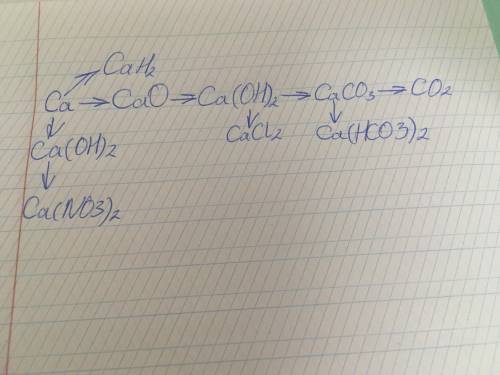 CaH₂
Ca → CaO → Ca(OH)₂ → CaCO₃ → CO₂
Ca(OH)₂ CaCl₂ Ca(HCO3)₂
Ca(NO3)₂